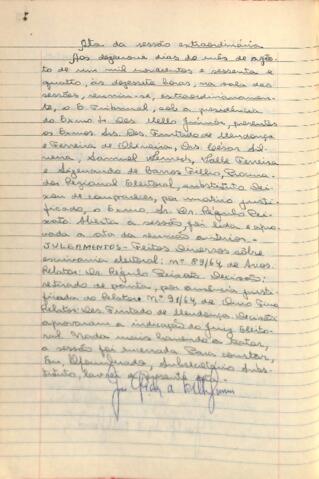 Ata da sessão extraordinária
Aos dezenove dias do mês de agôs-
to de um mil novecentos e sessenta e
quatro, às dezessete horas, na sala das
sessões, reuniu-se, extraordinariamen-
te, o E. Tribunal, sob a presidência
do Exmo Sr. Des. Mello Júnior, presentes
os Exmos. Srs. Des. Furtado de Mendonça
e Ferreira de Oliveira, Drs. César Sil-
veira, Samuel Valle Ferreira
e de Barros Filho, Procura-
dor Regional Eleitoral, substituto. Dei-
xou de comparecer, por motivo justi-
ficado, o Exmo. Sr. Dr. Régulo Pei-
xoto. Aberta a sessão, foi lida e apro-
vada a ata da reunião anterior. -
JULGAMENTOS - Feitos Diversos sôbre
escrivania eleitoral: nº 89/64, de
Relator: Dr. Régulo Peixoto. Decisão:
retirado de pauta, por ausência justi-
ficada do Relator. Nº 91/64, de Ouro Fino
Relator: Des. Furtado de Mendonça. Decisão:
aprovaram a indicação do Juiz Eleito-
ral. Nada mais havendo a tratar,
a sessão foi encerrada. Para constar,
Eu, Subsecretário Subs-
tituto, lavrei a presente ata.